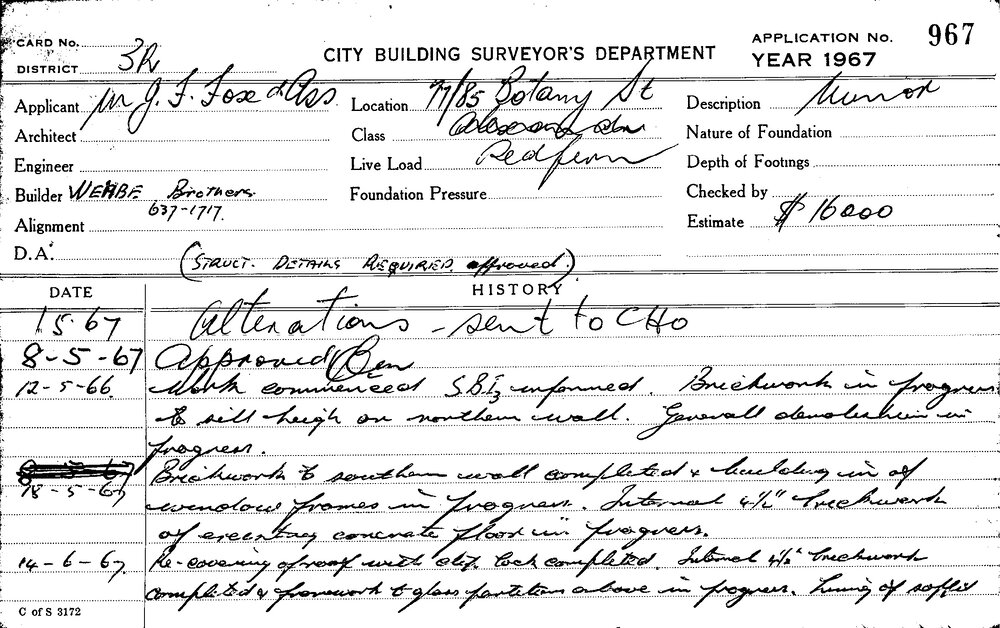 CARD No.
DISTRICT 3R
CITY BUILDING SURVEYOR'S DEPARTMENT
APPLICATION No. 967
YEAR 1967
Applicant J. F. Fox & Ass.
Location 77/85 Botany St
Description
Architect
Class
Nature of Foundation
Engineer
Live Load Redfern
Depth of Footings
Builder WEHBE Brothers
637-1717.
Foundation Pressure
Checked by
Alignment
Estimate $ 16000
D.A.
(STRUCT. DETAILS REQUIRED approved)
DATE HISTORY
1 5 67 Alterations - sent to CHO
8-5-67 Approved
12-5-66. Work commenced S.B.I. informed. Brickwork in progress
to sill heigh on northern wall. Generall demolishion in
progress.
18-5-67 Brickwork to southern wall completed & building in of
window frames in progress. Internal 4½" brickwork
of concrete floor in progress.
14-6-67. Re-covering of roof with clip lock completed. Internal 4½" brickwork
completed & framework to glass partitions above in progress. Lining of soffit
C of S 3172